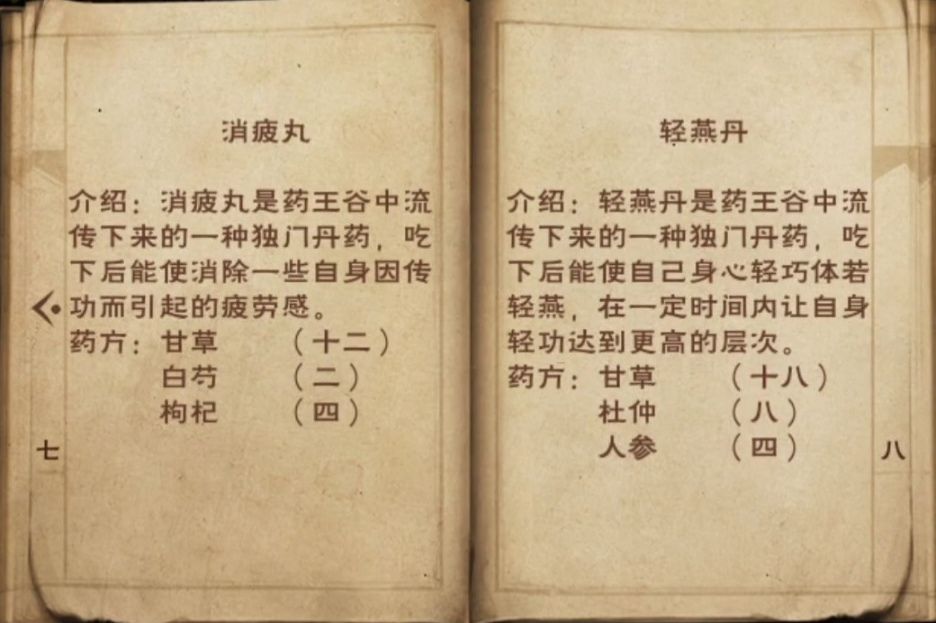 消疲丸
介绍：消疲丸是药王谷中流
传下来的一种独门丹药，吃
下后能使消除一些自身因传
功而引起的疲劳感。
药方：甘草 （十二）
白芍 （二）
枸杞 （四）
七
轻燕丹
介绍：轻燕丹是药王谷中流
传下来的一种独门丹药，吃
下后能使自己身心轻巧体若
轻燕，在一定时间内让自身
轻功达到更高的层次。
药方：甘草 （十八）
杜仲 （八）
人参 （四）
八